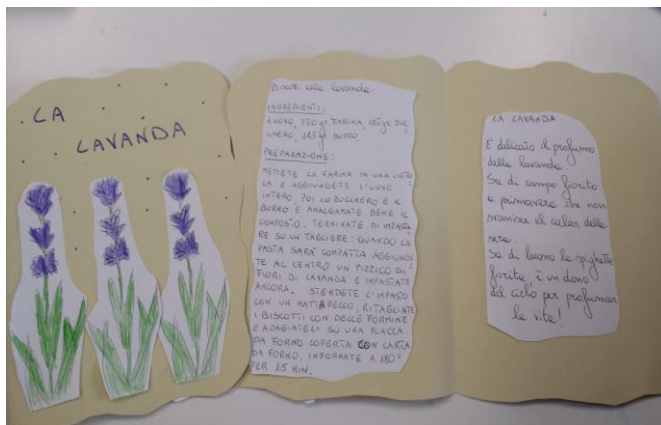 LA
LAVANDA
Biscotti alla lavanda
INGREDIENTI:
1 UOVO, 250 gr FARINA, 125gr ZUC
CHERO, 125gr BURRO
PREPARAZIONE:
METTETE LA FARINA IN UNA CIOTO
LA E AGGIUNGETE L'UOVO
INTERO, POI LO ZUCCHERO E IL
BURRO E AMALGAMATE BENE IL
COMPOSTO. TERMINATE DI IMPASTA
RE SU UN TAGLIERE: QUANDO LA
PASTA SARA' COMPATTA AGGIUNGE
TE AL CENTRO UN PIZZICO DI
FIORI DI LAVANDA E IMPASTATE
ANCORA. STENDETE L'IMPASTO
CON UN MATTARELLO, RITAGLIATE
I BISCOTTI CON DELLE FORMINE
E ADAGIATELI SU UNA PLACCA
DA FORNO COPERTA CON CARTA
DA FORNO, INFORNATE A 180°
PER 15 MIN.
LA LAVANDA
E' delicato il profumo
della lavanda.
Sa di campo fiorito
e primavera che non
svanisce al calar della
sera.
Sa di buono la spighetta
fiorita, è un dono
del cielo per profumar
la vita!